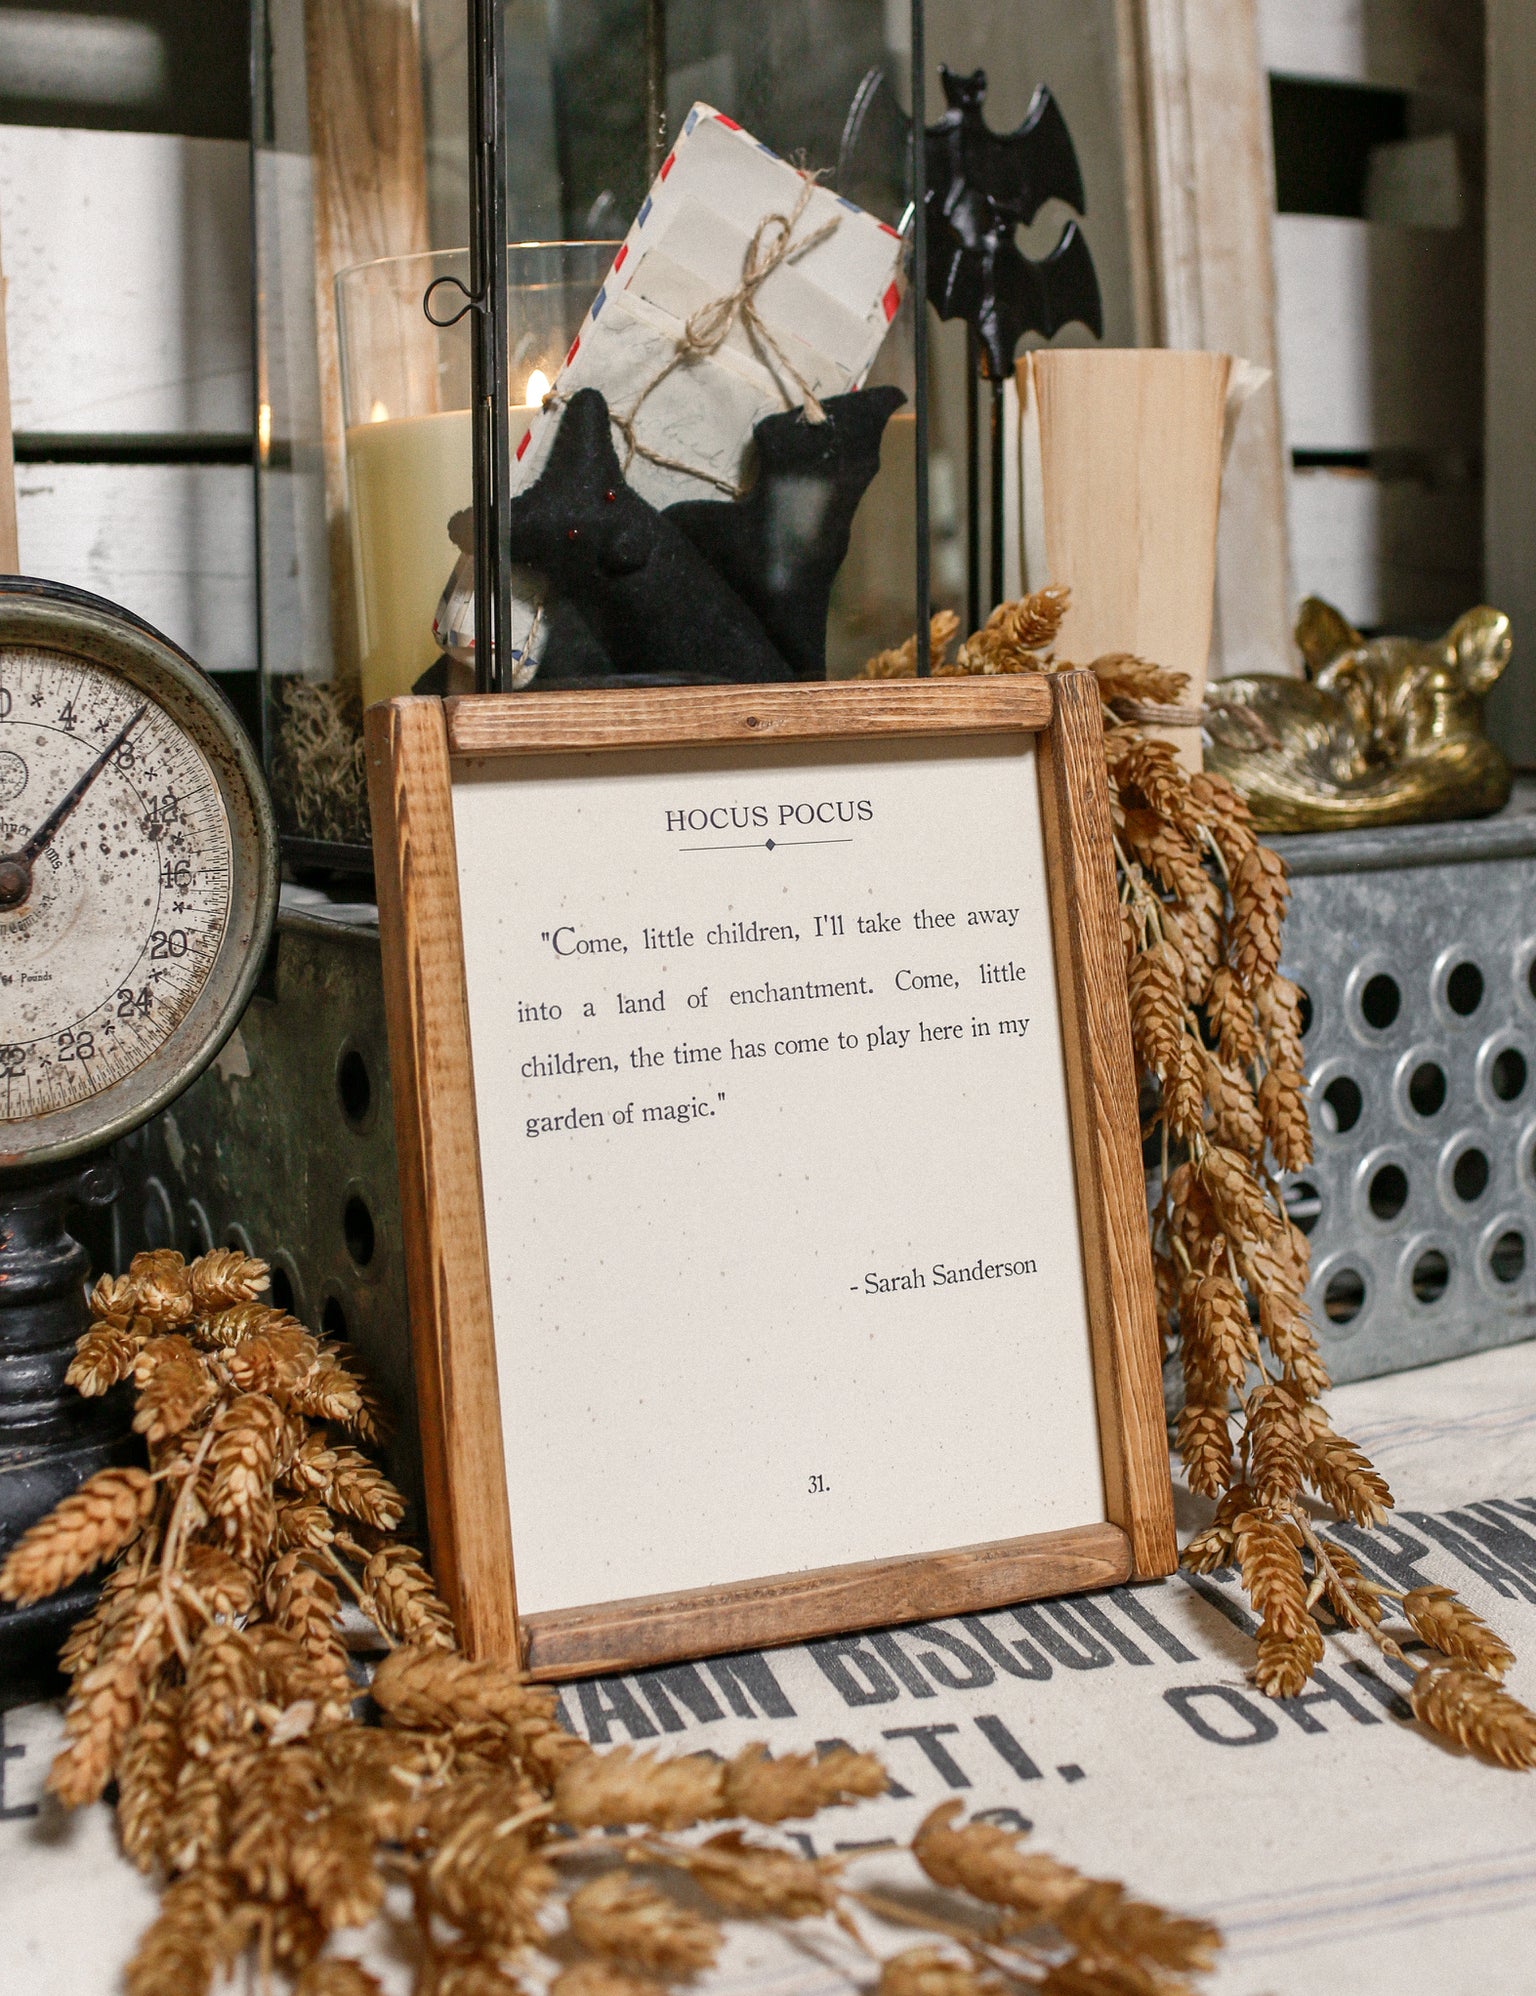 HOCUS POCUS
"Come, little children, I'll take thee away
into a land of enchantment. Come, little
children, the time has come to play here in my
garden of magic."
- Sarah Sanderson
31.
0
4
8
12
16
20
24
28
32
Pounds
BISCUIT